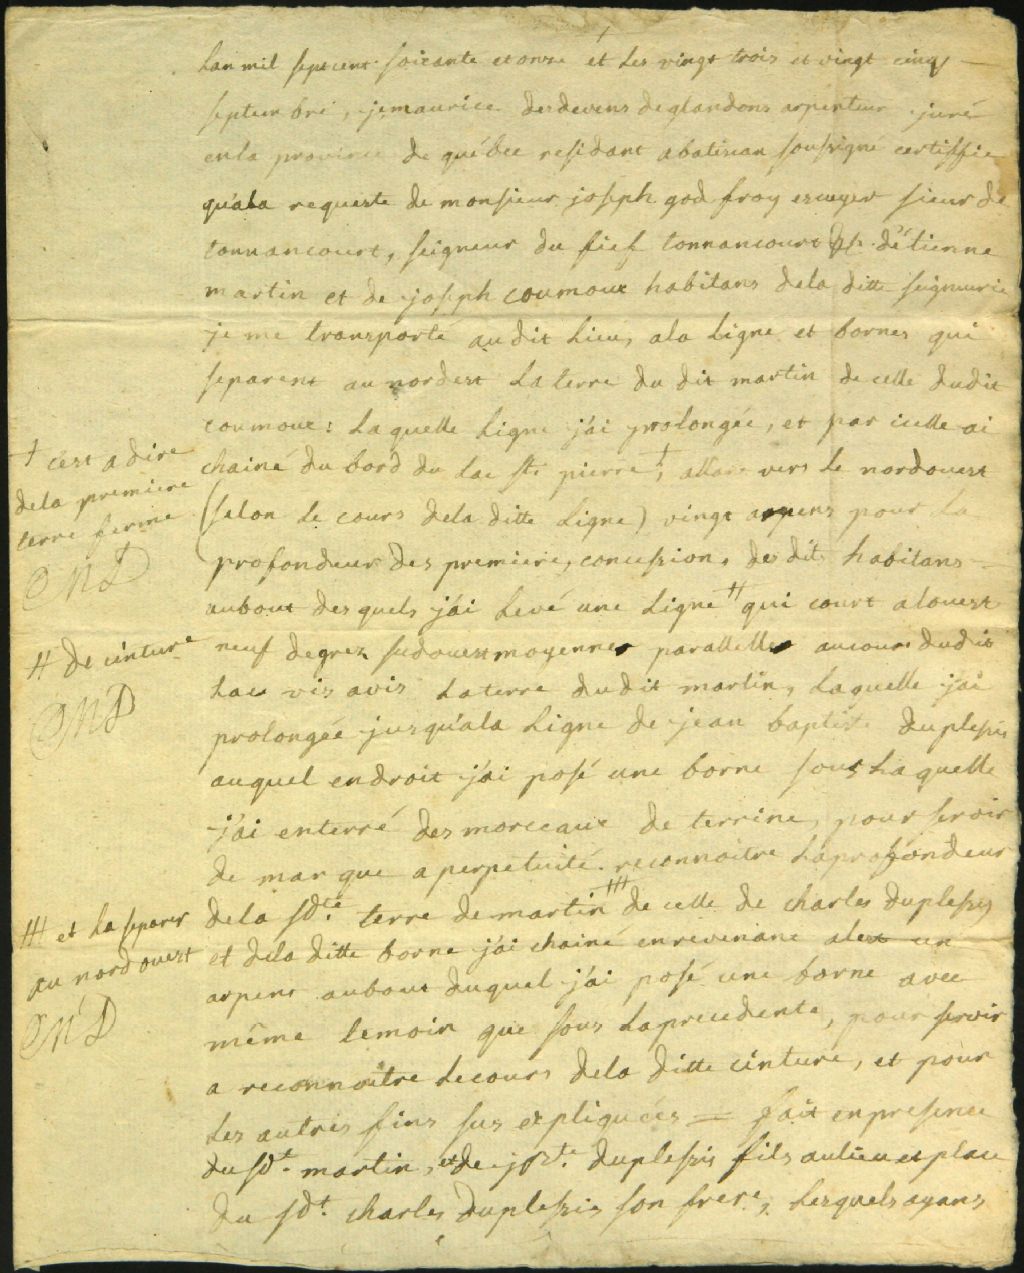 Lan mil septcent soixante et onze et les vingt trois et vingt cinq
septembre, je maurice desdevens deglandons arpenteur juré
en la province de québec residant abatiscan soussigné certiffie
qu'ala requeste de monsieur joseph godfroy escuyer sieur de
tonnancourt, seigneur du fief tonnancourt d'étienne
martin et de joseph coumoux habitans dela ditte seigneurie
je me transporté audit Lieu, ala Ligne et bornes qui
separent au nordest La terre du dit martin de celle dudit
coumoux: Laquelle Ligne j'ai prolongée, et par icelle ai
chainé du bord du Lac St. pierre †, allant vers Le nordouest
(selon Le cours dela ditte Ligne) vingt arpens pour La
profondeur des premieres concessions desdits habitans
aubout desquels j'ai Levé une Ligne # qui court alouest
neuf degrez sudouest moyenne parallelle aucours dudit
Lac vis avis Laterre dudit martin, Laquelle j'ai
prolongée jusqu'ala Ligne de jean baptiste duplessis
auquel endroit j'ai posé une borne sous Laquelle
j'ai enterré des morceaux de terrine, pour servir
de marque a perpetuité. reconnoitre Laprofondeur
dela sdte. terre de martin ### de celle de charles duplessis
et dela ditte borne j'ai chainé enrevenant alest un
arpent aubout duquel j'ai posé une borne avec
même temoin que sous Laprecedente, pour servir
a reconnoitre Lecours dela ditte cinture, et pour
Les autres fins sus expliquées = fait enpresence
du sdt. martin, et de jbte. duplessis fils aulieu et place
du sdt. charles duplessis son frere, Lesquels ayans
† c'est adire
dela premiere
terre ferme
MD
# de cinture
MD
### et La separer
au nord ouest
MD